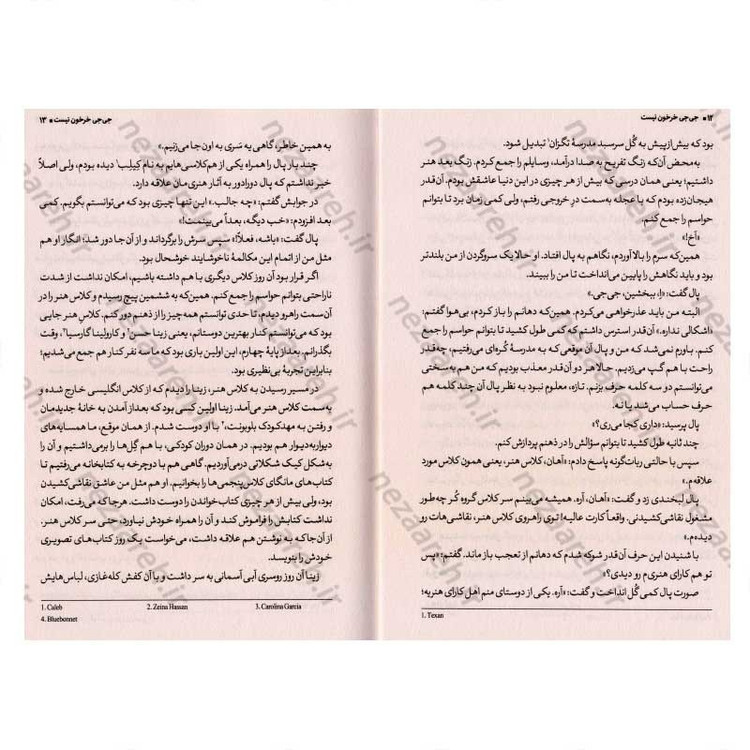 ۱۲ • جی‌جی خرخون نیست
بود که بیش‌ازپیش به گُل سرسبد مدرسهٔ تگزان¹ تبدیل شود.
به‌محض آن‌که زنگ تفریح به صدا درآمد، وسایلم را جمع کردم. زنگ بعد هنر
داشتیم؛ یعنی همان درسی که بیش از هر چیزی در این دنیا عاشقش بودم. آن‌قدر
هیجان‌زده بودم که با عجله به‌سمت درِ خروجی رفتم، ولی کمی زمان برد تا بتوانم
حواسم را جمع کنم.
«آخ!»
همین‌که سرم را بالا آوردم، نگاهم به پال افتاد. او حالا یک سروگردن از من بلندتر
بود و باید نگاهش را پایین می‌انداخت تا من را ببیند.
پال گفت: «اِ، ببخشین، جی‌جی.»
البته من باید عذرخواهی می‌کردم. همین‌که دهانم را باز کردم، بی‌هوا گفتم:
«اشکالی نداره.» آن‌قدر استرس داشتم که کمی طول کشید تا بتوانم حواسم را جمع
کنم. باورم نمی‌شد که من و پال آن موقعی که به مدرسهٔ کُره‌ای می‌رفتیم، چه‌قدر
راحت با هم گپ می‌زدیم. حالا هر دو آن‌قدر معذب بودیم که من هم به‌سختی
می‌توانستم دو سه کلمه حرف بزنم. تازه، معلوم نبود به نظر پال آن چند کلمه هم
حرف حساب می‌شد یا نه.
پال پرسید: «داری کجا می‌ری؟»
چند ثانیه طول کشید تا بتوانم سؤالش را در ذهنم پردازش کنم.
سپس با حالتی ربات‌گونه پاسخ دادم: «آهان، کلاس هنر، یعنی همون کلاس مورد
علاقه‌م.»
پال لبخندی زد و گفت: «آهان، آره. همیشه می‌بینم سر کلاس گروه کُر چه‌طور
مشغول نقاشی‌کشیدنی. واقعاً کارت عالیه! توی راهروی کلاس هنر، نقاشی‌هات رو
دیده‌م.»
با شنیدن این حرف آن‌قدر شوکه شدم که دهانم از تعجب باز ماند. گفتم: «پس
تو هم کارای هنری‌م رو دیدی؟»
صورت پال کمی گُل انداخت و گفت: «آره. یکی از دوستای منم اهل کارای هنریه؛
1. Texan
جی‌جی خرخون نیست • ۱۳
به همین خاطر، گاهی یه سَری به اون‌جا می‌زنیم.»
چند بار پال را همراه یکی از هم‌کلاسی‌هایم به نام کِیلِب¹ دیده بودم، ولی اصلاً
خبر نداشتم که پال دورادور به آثار هنری‌مان علاقه دارد.
در جوابش گفتم: «چه جالب.» این تنها چیزی بود که می‌توانستم بگویم. کمی
بعد افزودم: «خب دیگه، بعداً می‌بینمت!»
پال گفت: «باشه، فعلاً!» سپس سرش را برگرداند و از آن‌جا دور شد؛ انگار او هم
مثل من از اتمام این مکالمهٔ ناخوشایند خوشحال بود.
اگر قرار بود آن روز کلاس دیگری با هم داشته باشیم، امکان نداشت از شدت
ناراحتی بتوانم حواسم را جمع کنم. همین‌که به ششمین پیچ رسیدم و کلاس هنر را در
آن سمت راهرو دیدم، تا حدی توانستم همه‌چیز را از ذهنم دور کنم. کلاس هنر جایی
بود که می‌توانستم کنار بهترین دوستانم، یعنی زینا حسن² و کارولینا گارسیا³، وقت
بگذرانم. بعد از پایهٔ چهارم، این اولین باری بود که ما سه نفر کنار هم جمع می‌شدیم؛
بنابراین تجربهٔ بی‌نظیری بود.
در مسیر رسیدن به کلاس هنر، زینا را دیدم که از کلاس انگلیسی خارج شده و
به‌سمت کلاس هنر می‌آمد. زینا اولین کسی بود که بعد از آمدن به خانهٔ جدیدمان
و رفتن به مهدکودک بلوبونت⁴ با او دوست شدم. از همان موقع، ما همسایه‌های
دیواربه‌دیوار هم بودیم. در همان دوران کودکی، با هم گِل‌ها را برمی‌داشتیم و آن را
به‌شکل کیک شکلاتی درمی‌آوردیم. گاهی هم با دوچرخه به کتابخانه می‌رفتیم تا
کتاب‌های مانگای کلاس‌پنجمی‌ها را بخوانیم. او هم مثل من عاشق نقاشی‌کشیدن
بود، ولی بیش از هر چیزی کتاب‌خواندن را دوست داشت. هرجا که می‌رفت، امکان
نداشت کتابش را فراموش کند و آن را همراه خودش نیاورد، حتی سر کلاس هنر.
از آن‌جا که به نوشتن هم علاقه داشت، می‌خواست یک روز کتاب‌های تصویری
خودش را بنویسد.
زینا آن روز روسری آبی آسمانی به سر داشت و با آن کفش کله‌غازی، لباس‌هایش
1. Caleb 2. Zeina Hassan 3. Carolina Garcia
4. Bluebonnet
nezaareh.ir